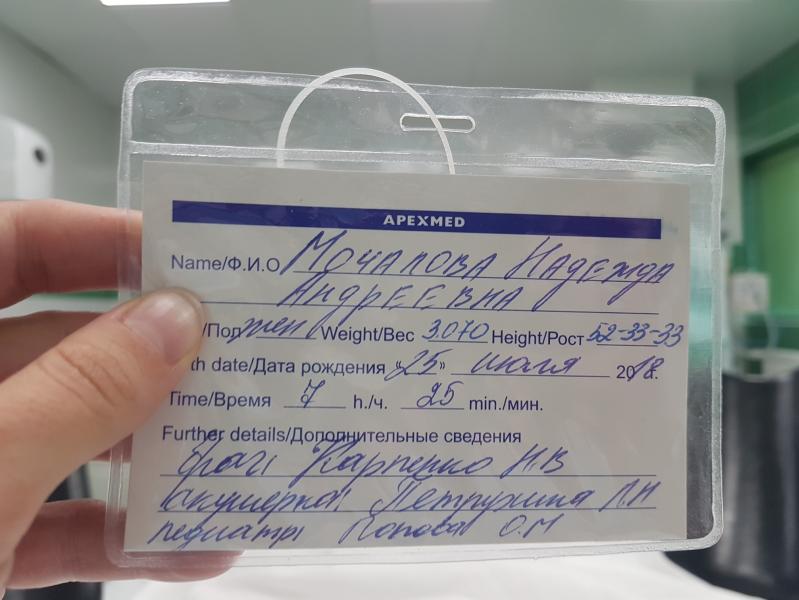 APEXMED
Name/Ф.И.О Мочалова Надежда
Андреевна
/Пол жен Weight/Вес 3.070 Height/Рост 52-33-33
th date/Дата рождения «25» июля 2018г.
Time/Время 7 h./ч. 25 min./мин.
Further details/Дополнительные сведения
врач: Карпенко Н.В
акушерка: Петрухина Л.Н
педиатр: Попова О.М